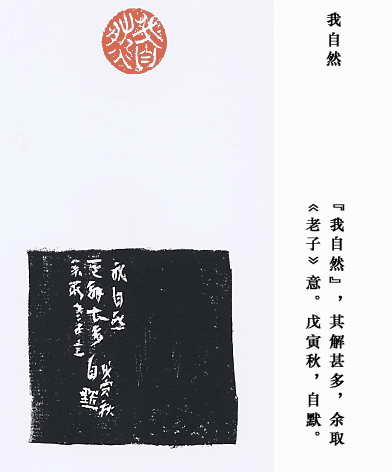 我自然
『我自然』，其解甚多，余取
《老子》意。戊寅秋，自默。
我自然
我自然
其解甚多
余取老子意
戊寅秋
自默